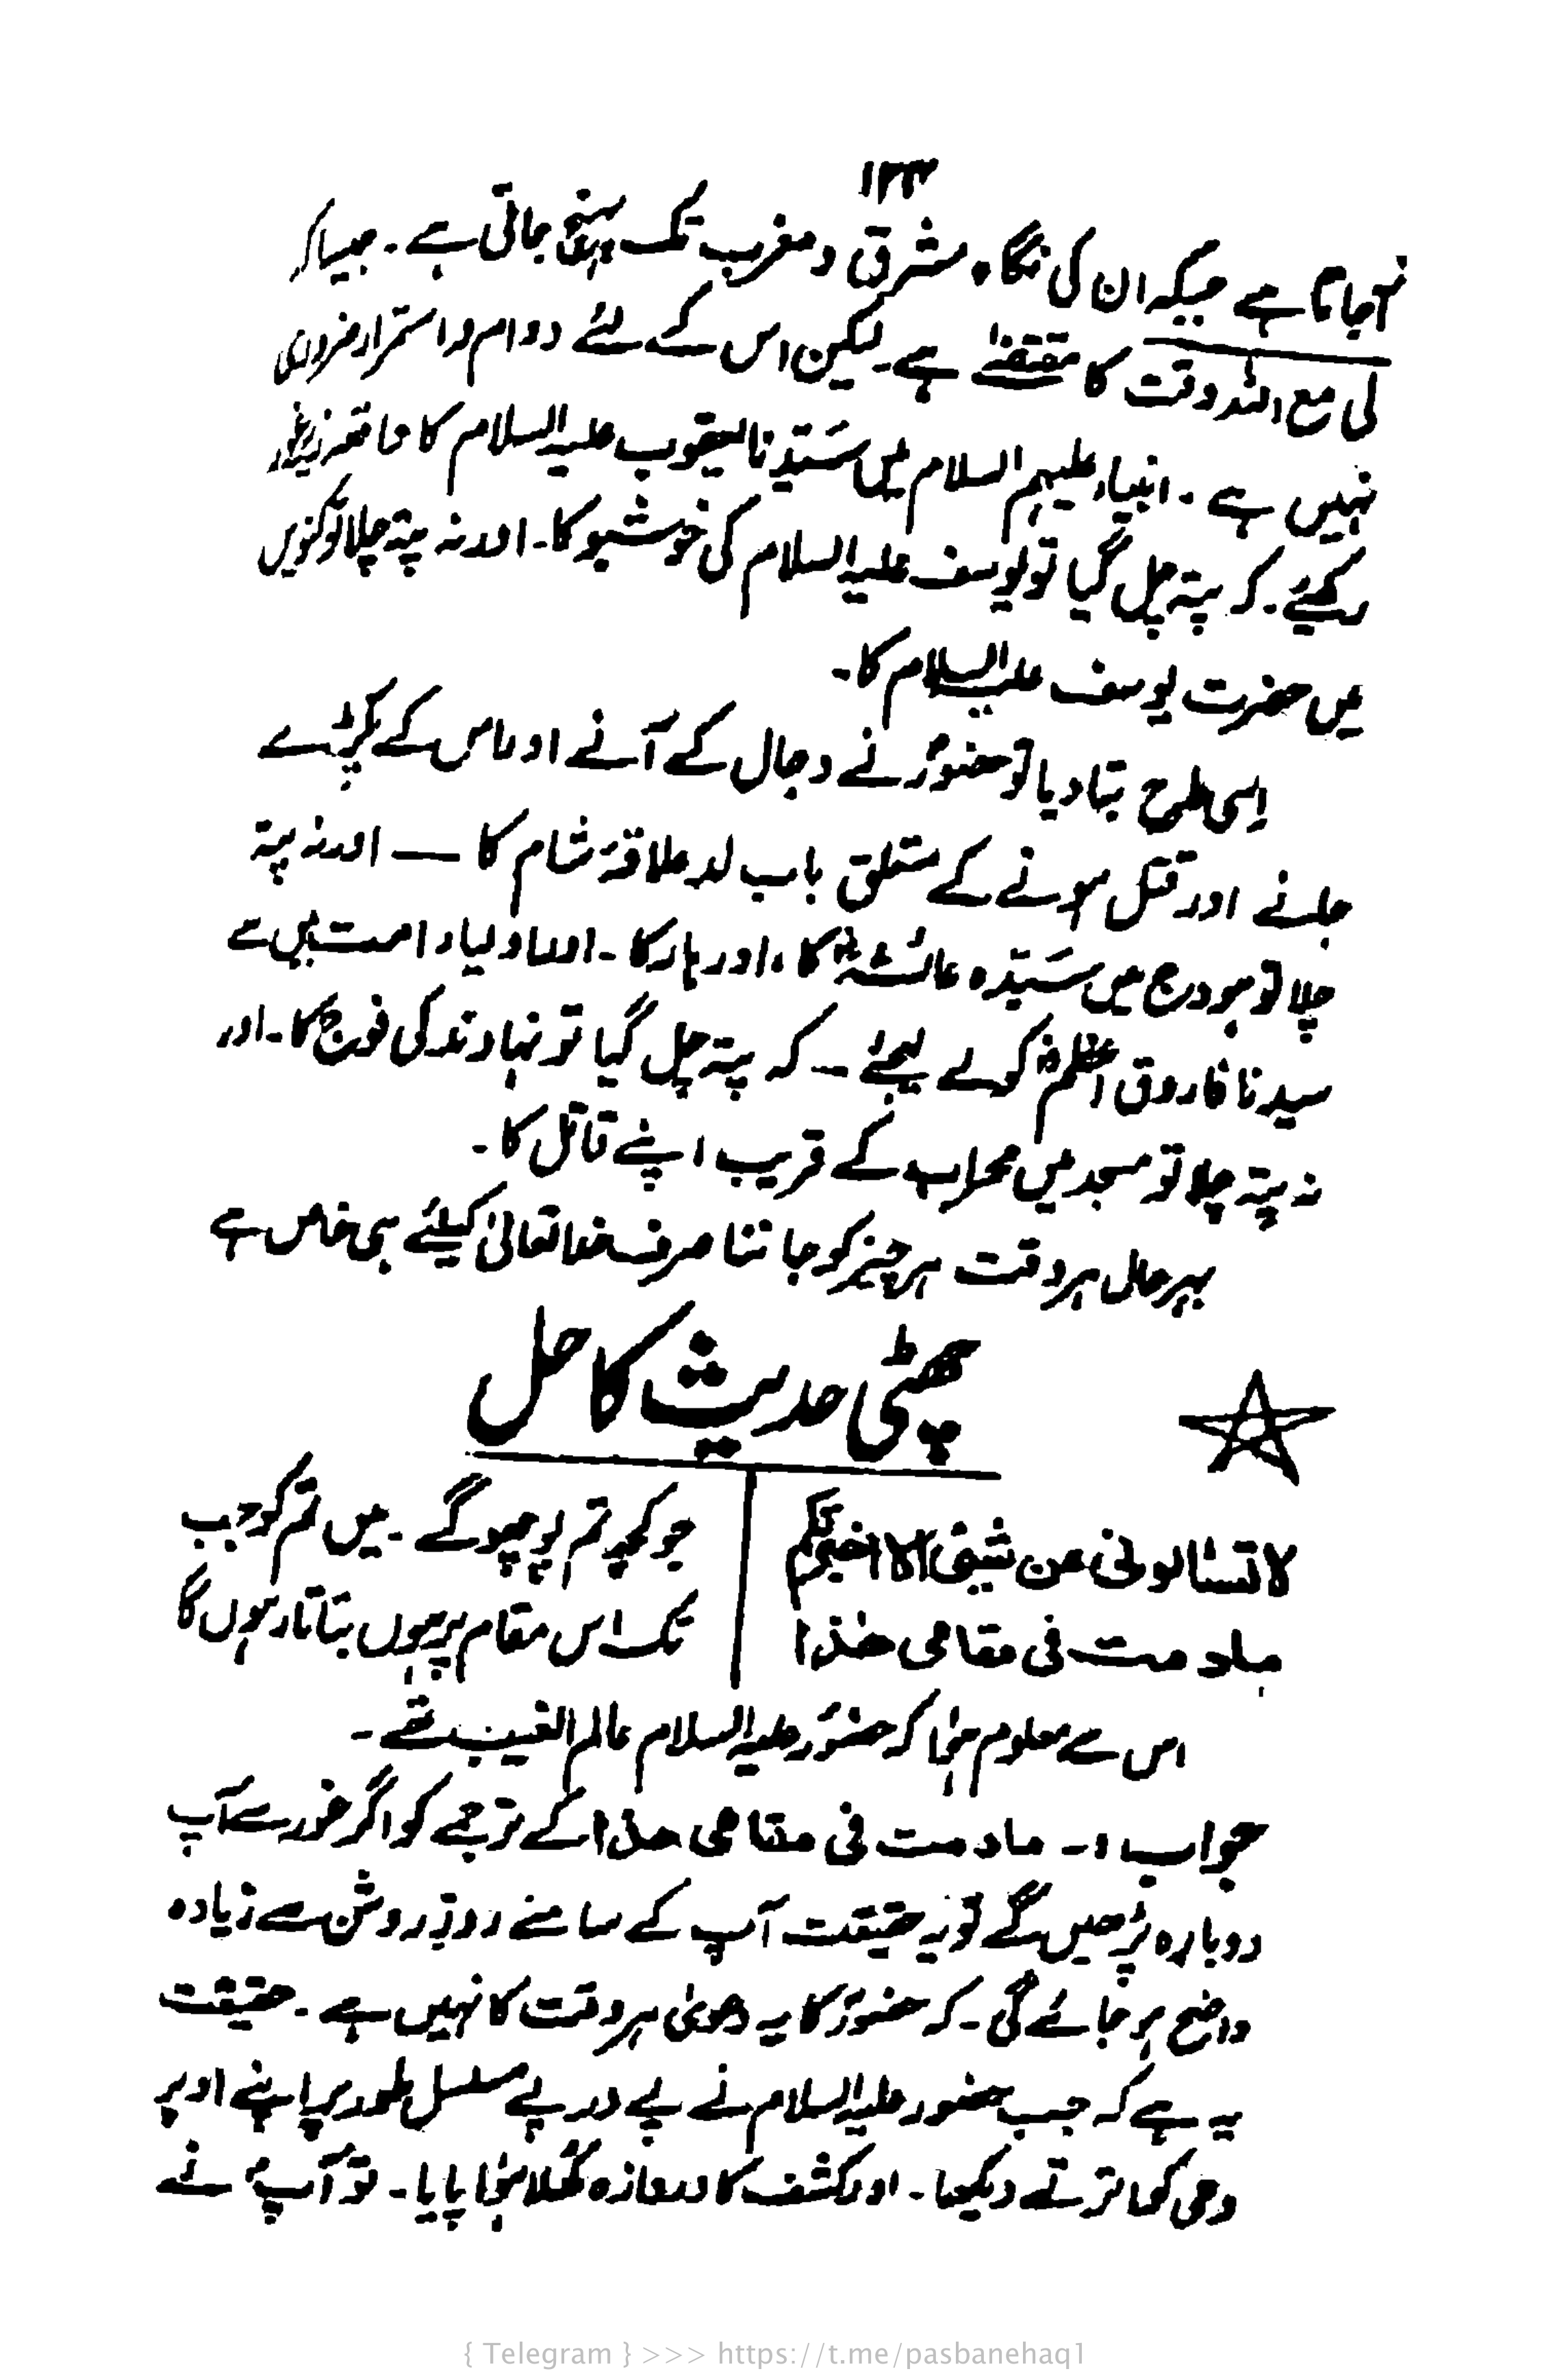 ۱۳۳
آجاتا ہے جبکہ ان کی نگاہ مشرق و مغرب تک پہنچ جاتی ہے۔ جیسا کہ
لی مع اللہ وقت کا مقتضےٰ ہے۔ لیکن اس کے لئے دوام و استمرار ضروری
نہیں ہے۔ انبیاء علیہم السلام میں سَیّدِنا یعقوب علیہ السلام کا واقعہ زیر غور
رکھیے۔ کہ پتہ چل گیا تو یوسف علیہ السلام کی خوشبو کا۔ اور نہ پتہ چلا تو کنویں
میں حضرت یوسف علیہ السلام کا۔
اسی طرح بتا دیا تو حضورؐ نے دجال کے آنے اور اس کے پکڑے
جانے اور قتل ہونے کے متعلق باب لد علاقۂ شام کا — اور نہ پتہ
چلا تو ہودج میں سَیّدہ عائشہؓ کا، اور ہار کا۔ اور اولیاء امت میں سے
سیدنا فاروق اعظمؓ کو لے لیجئے۔ کہ پتہ چل گیا تو نہاوند کی فوج کا۔ اور
نہ پتہ چلا تو مسجد میں محراب کے قریب اپنے قاتل کا۔
بہر حال ہر وقت ہر چیز کو جاننا صرف خدا تعالیٰ کیلئے ہی خاص ہے
چھٹی حدیث کا حل
لا تسالونی عن شیئ الا اخبرتکم
جو کچھ تم پوچھو گے۔ میں تم کو جب
مادمت فی مقامی ھٰذا
تک اس مقام پر ہوں بتاتا رہوں گا
اس سے معلوم ہؤا کہ حضورؐ علیہ السلام عالم الغیب تھے۔
جواب :۔ مادمت فی مقامی ھذا کے ترجمے کو اگر غور سے آپ
دوبارہ پڑھیں گے تو یہ حقیقت آپ کے سامنے روز روشن سے زیادہ
واضح ہو جائے گی۔ کہ حضورؐ کا یہ دعویٰ ہر وقت کا نہیں ہے۔ حقیقت
یہ ہے کہ جب حضور علیہ السلام نے پے در پے مسلسل طور پر اپنے اوپر
وحی کو اترتے دیکھا۔ اور کشف کا دروازہ کُھلا ہؤا پایا۔ تو آپؐ نے
{ Telegram } >>> https://t.me/pasbanehaq1